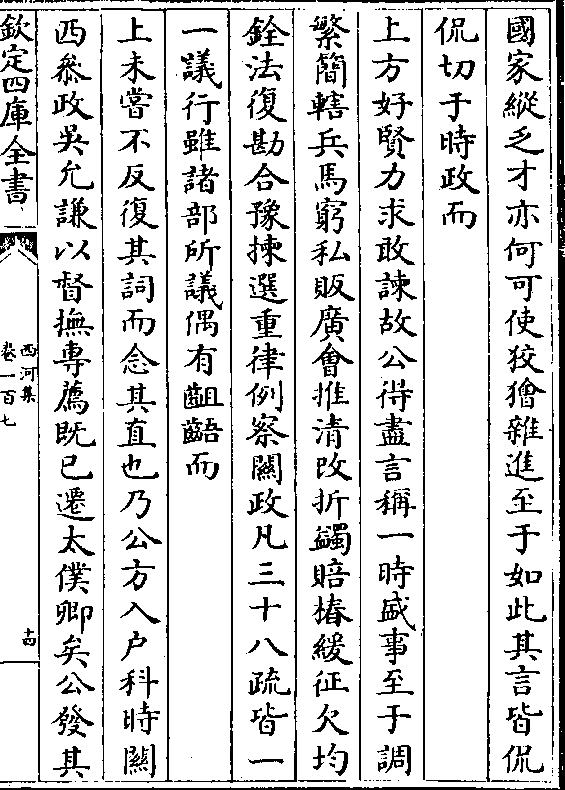 國家縱乏才亦何可使狡獪雜進至于如此其言皆侃
侃切于時政而
上方好賢力求敢諫故公得盡言稱一時盛事至于調
繁簡轄兵馬窮私販廣會推清改折蠲賠樁緩征欠均
銓法復勘合豫揀選重律例察關政凡三十八疏皆一
一議行雖諸部所議偶有齟齬而
上未嘗不反復其詞而念其直也乃公方入户科時關
西叅政吳允謙以督撫專薦既已遷太僕卿矣公發其
欽定四庫全書
西河集
卷一百七
十四